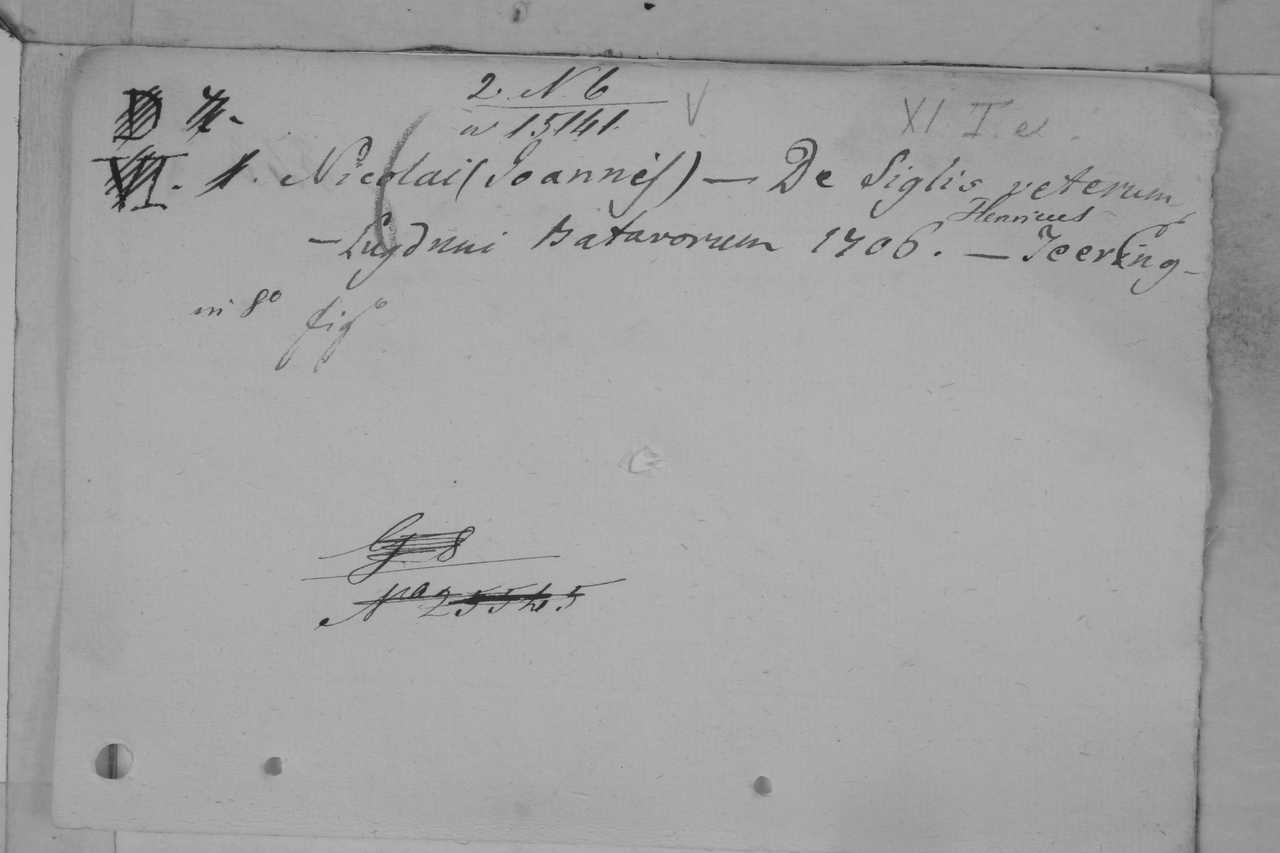 2. N 6
V
XI I. e.
D 4.
n° 15141.
VII. 1. Nicolai (Joannis) — De Siglis veterum
Henricus
— Lugduni Batavorum 1706. — Teering -
in 8° fig°
G 8
N° 25545